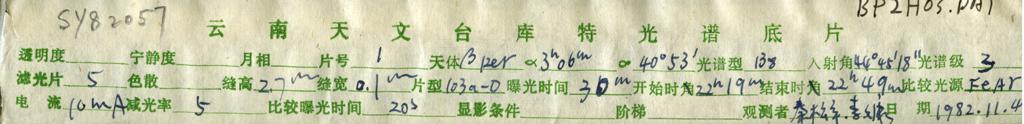 SY82057
BP2H03.DAT
云南天文台库特光谱底片
透明度 宁静度 月相 片号 1 天体 β per α 3h06m δ 40°53′ 光谱型 B8 入射角 44°45′18″ 光谱级 3
滤光片 5 色散 缝高 2.7m 缝宽 0.1m 片型 103a-O 曝光时间 30m 开始时角 22h19m 结束时角 22h49m 比较光源 FeAr
电流 10mA 减光率 5 比较曝光时间 20s 显影条件 阶梯 观测者 日期 1982.11.4